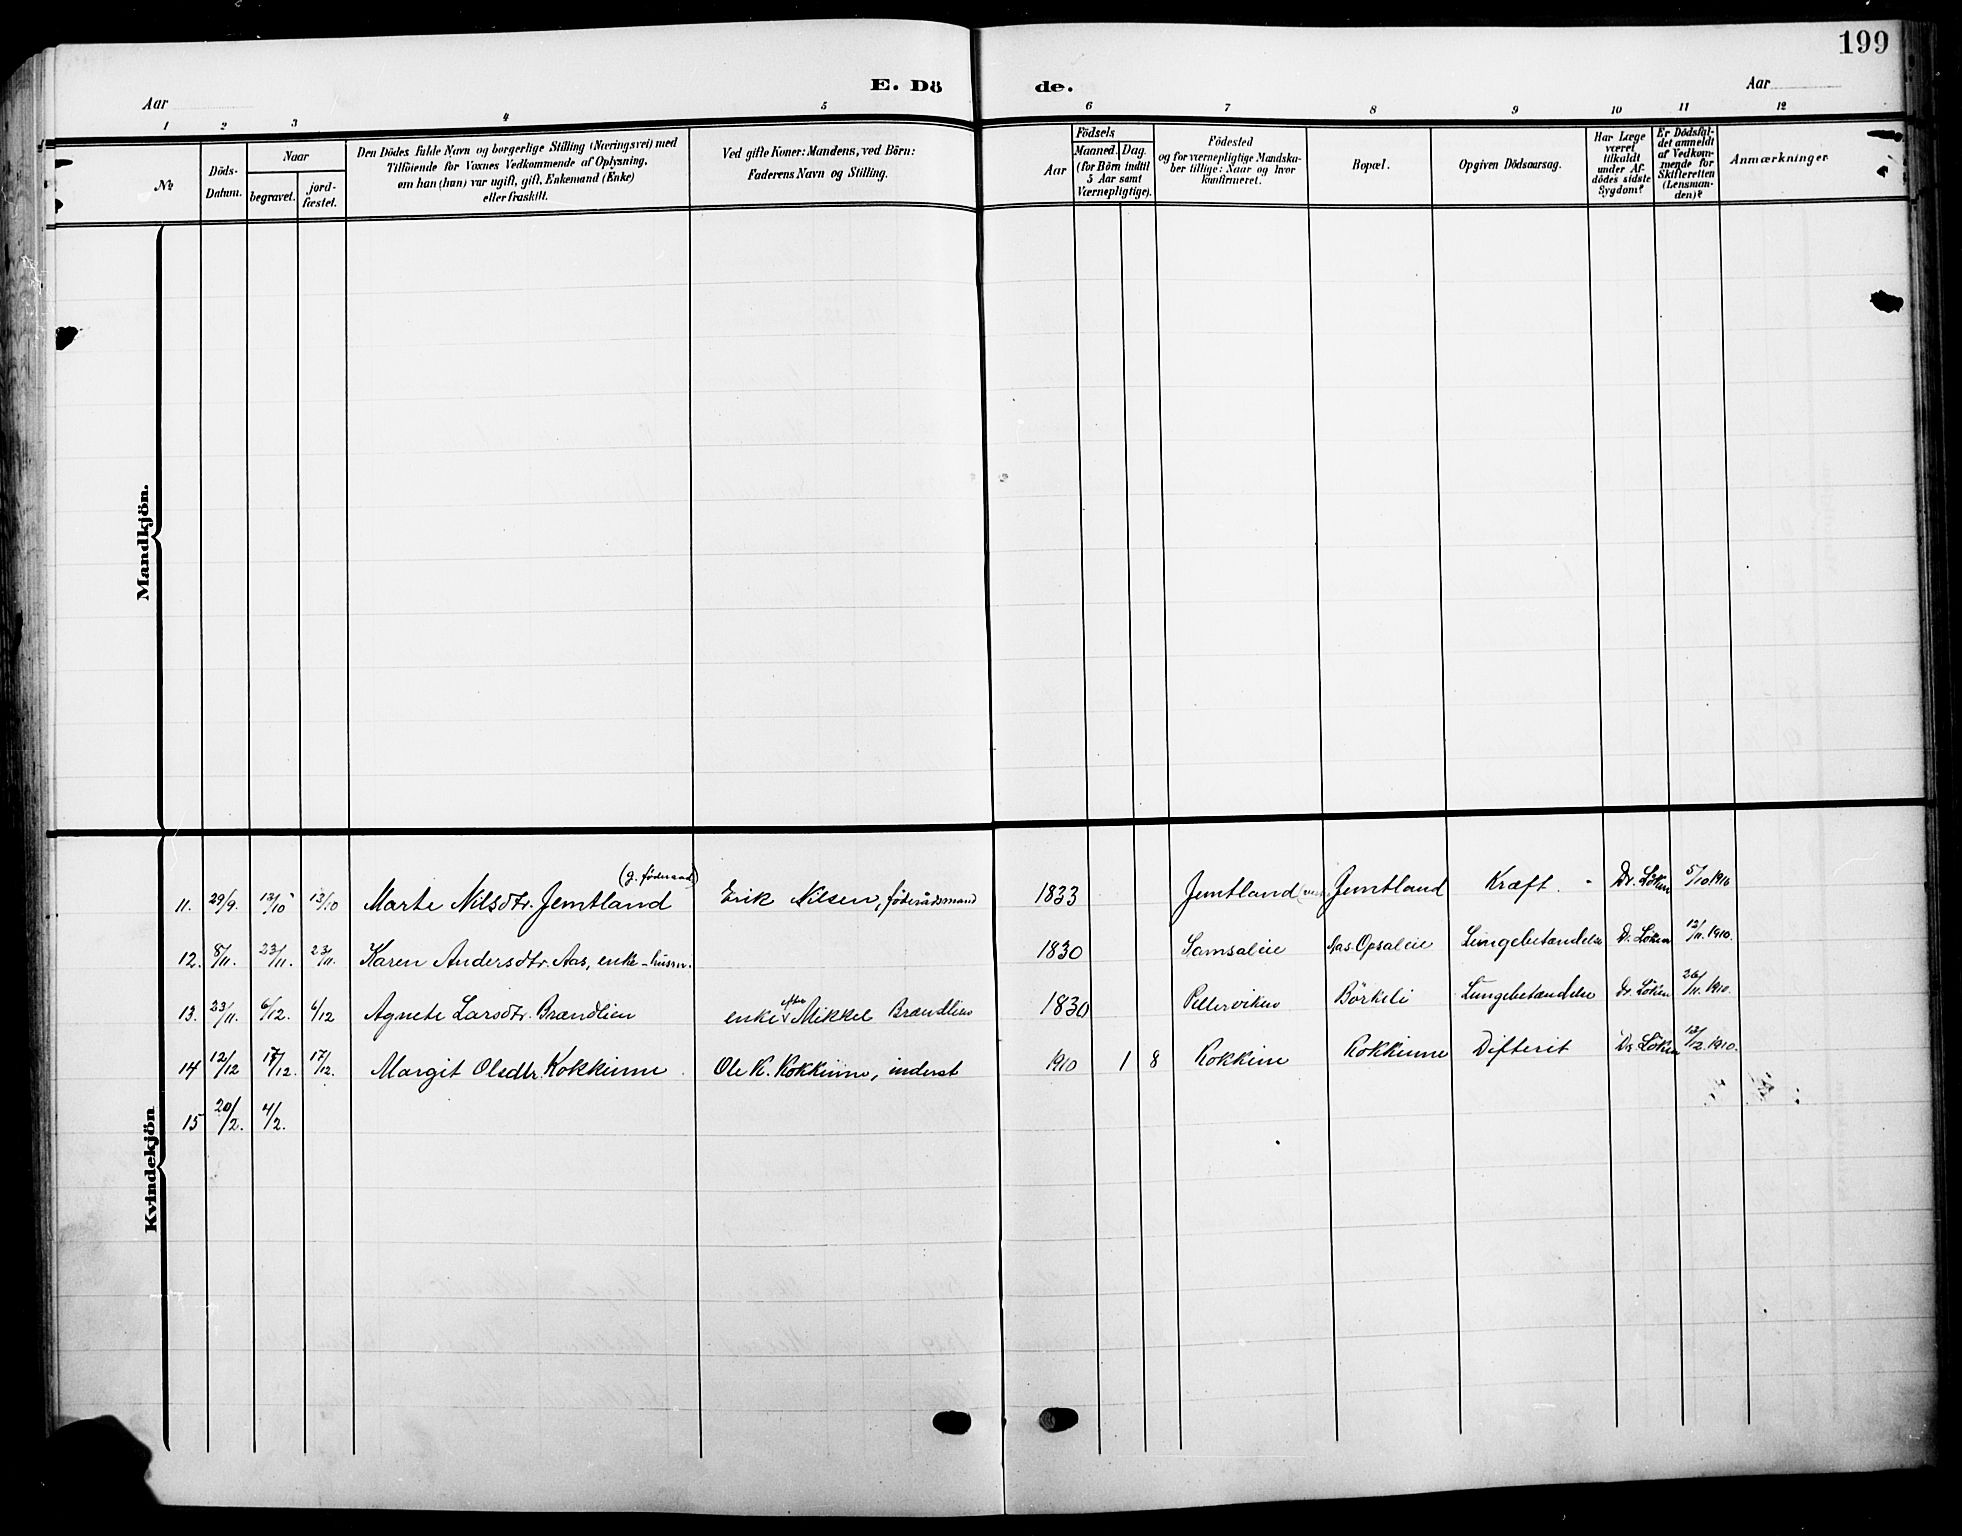 199
E. Dö de.
Aar Aar
1 2 3 4 5 6 7 8 9 10 11 12
No
Döds-Datum.
Naar
begravet.
jord-fæstet.
Den Dödes fulde Navn og borgerlige Stilling (Næringsvei) med
Tilföiende for Voxnes Vedkommende af Oplysning,
om han (hun) var ugift, gift, Enkemand (Enke)
eller fraskilt.
Ved gifte Koner: Mandens, ved Börn:
Faderens Navn og Stilling.
Födsels
Aar
Maaned. Dag.
(for Börn indtil
5 Aar samt
Værnepligtige).
Födested
og for værnepligtige Mandska-
ber tillige: Naar og hvor
konfirmeret.
Bopæl.
Opgiven Dödsaarsag.
Har Læge
været
tilkaldt
under Af-
dödes sidste
Sygdom?
Er Dödsfal-
det anmeldt
af Vedkom-
mende for
Skifteretten
(Lensman-
den)?
Anmærkninger
Mandkjön.
Kvindekjön
(g. föderaad)
11. 29/9. 13/10 13/10 Marte Nilsdtr. Jemtland Erik Nilsen, föderådsmand 1833 Jemtland Jemtland Kræft. - Dr. Löken 5/10 1910
12. 8/11. 23/11. 23/11. Karen Andersdtr. Aas, enke - husm. 1830 Samsaleie Aas. Opsaleie Lungebetændelse Dr. Löken 12/11. 1910.
13. 23/11. 6/12. 6/12 Agnete Larsdtr. Brændlien enke efter Mikkel Brændlien 1830 Pellerviken Börkeli Lungebetændelse Dr. Löken 26/11. 1910.
14 12/12 17/12. 17/12. Margit Olsdtr. Kokkinne Ole K. Kokkinne, inderst 1910 1 8 Kokkine Kokkinne Difterit Dr. Löken 13/12. 1910.
15 20/2. 4/2.